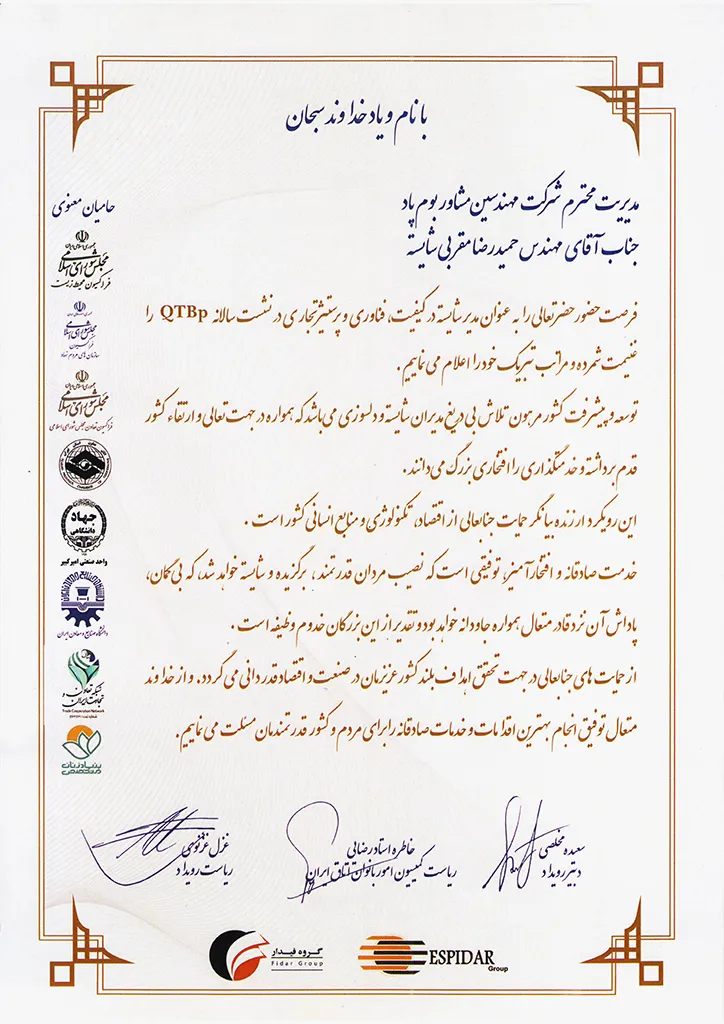 با نام و یاد خداوند سبحان
مدیریت محترم شرکت مهندسین مشاور بوم پاد
جناب آقای مهندس حمیدرضا مقربی شایسته
فرصت حضور حضرتعالی را به عنوان مدیر شایسته در کیفیت، فناوری و پرستیژ تجاری در نشست سالانه QTBp را
غنیمت شمرده و مراتب تبریک خود را اعلام می نماییم.
توسعه و پیشرفت کشور مرهون تلاش بی دریغ مدیران شایسته و دلسوزی می باشد که همواره در جهت تعالی و ارتقاء کشور
قدم برداشته و خدمتگذاری را افتخاری بزرگ می دانند.
این رویکرد ارزنده بیانگر حمایت جنابعالی از اقتصاد، تکنولوژی و منابع انسانی کشور است.
خدمت صادقانه و افتخارآمیز، توفیقی است که نصیب مردان قدرتمند، برگزیده و شایسته خواهد شد، که بی گمان،
پاداش آن نزد قادر متعال همواره جاودانه خواهد بود و تقدیر از این بزرگان خدوم وظیفه است.
از حمایت های جنابعالی در جهت تحقق اهداف بلند کشور عزیزمان در صنعت و اقتصاد قدردانی می گردد. و از خداوند
متعال توفیق انجام بهترین اقدامات و خدمات صادقانه را برای مردم و کشور قدرتمندمان مسئلت می نماییم.
حامیان معنوی
جمهوری اسلامی ایران
مجلس شورای اسلامی
فراکسیون محیط زیست
مجلس شورای اسلامی
فراکسیون
سازمان های مردم نهاد
جمهوری اسلامی ایران
مجلس شورای اسلامی
فراکسیون تعاون مجلس شورای اسلامی
جهاد
دانشگاهی
واحد صنعتی امیرکبیر
دانشگاه صنایع و معادن ایران
شبکه تعاون و
تجارت ایران
Trade Cooperation Network
بنیاد زنان
متخصص
سعیده مخلصی
دبیر رویداد
خاطره استاد رضایی
ریاست کمیسیون امور بانوان اتاق ایران
غزل غزنوی
ریاست رویداد
گروه فیدار
Fidar Group
ESPIDAR
Group